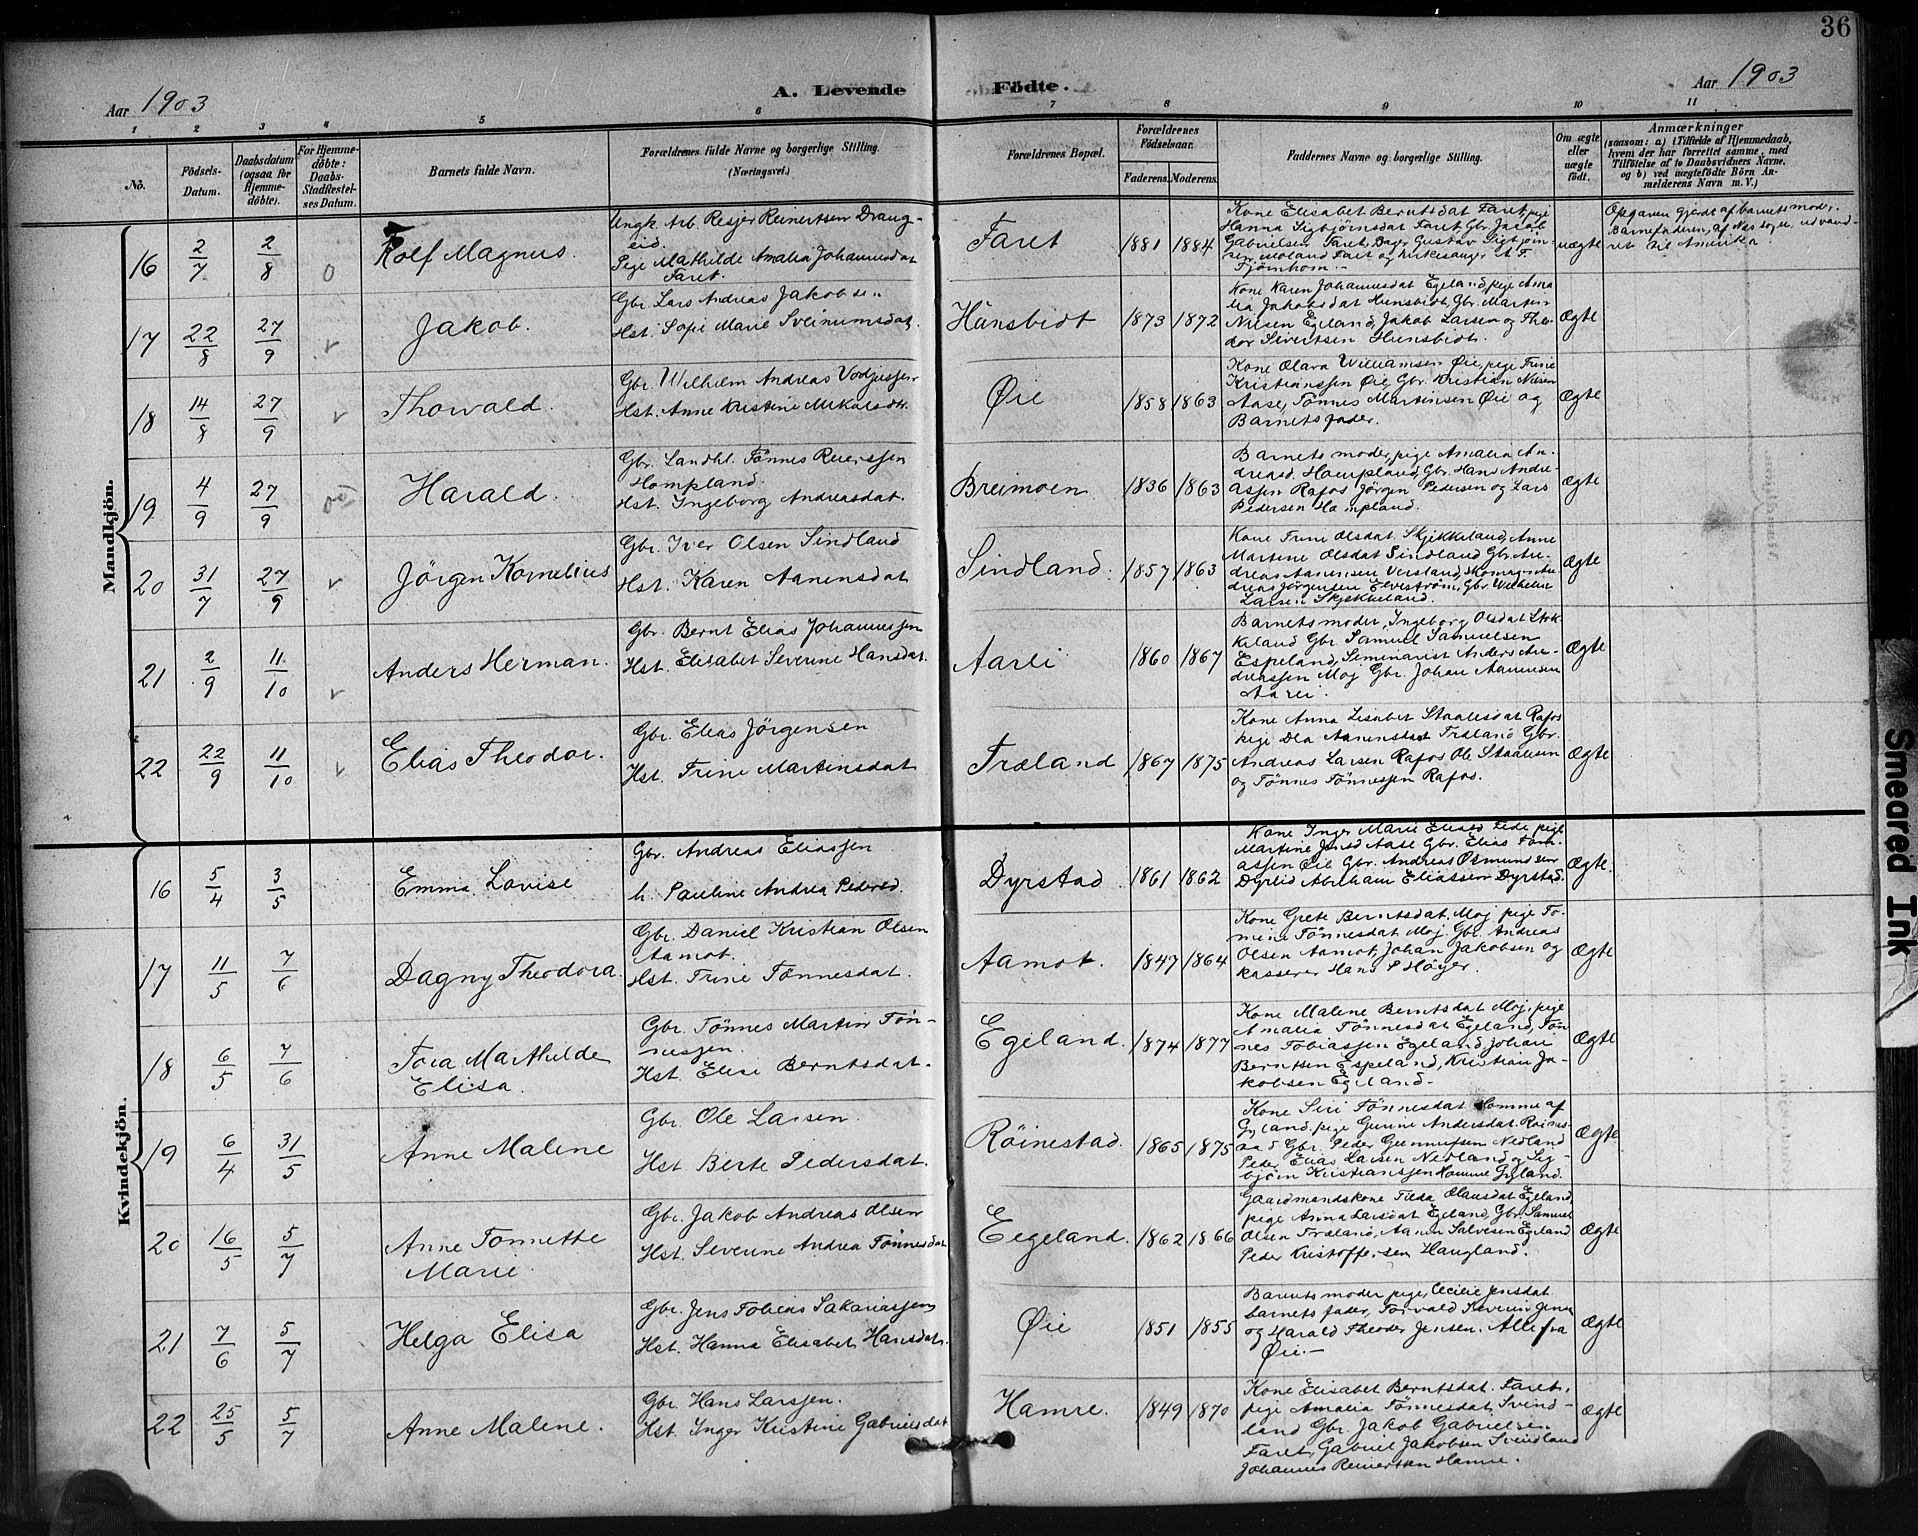 36
Aar 1903
A. Levende Födte.
Aar 1903
1 2 3 4 5 6 7 8 9 10 11
No.
Födsels-
Datum.
Daabsdatum
(ogsaa for
Hjemme-
döbte).
For Hjemme-
döbte:
Daabs-
Stadfæstel-
ses Datum.
Barnets fulde Navn.
Forældrenes fulde Navne og borgerlige Stilling.
(Næringsvei.)
Forældrenes Bopæl.
Forældrenes
Födselsaar.
Faderens. Moderens.
Faddernes Navne og borgerlige Stilling.
Om ægte
eller
uægte
født.
Anmærkninger
(saasom: a) i Tilfælde af Hjemmedaab,
hvem der har forrettet samme, med
Tilföielse af to Daabsvidners Navne.
og b) ved uægtefödte Börn An-
melderens Navn m. V.)
Mandkjön.
16 2/7 2/8 0 Rolf Magnus.
Ungk. Arb. Resjer Reinertsen Draug-
eid.
Pige Mathilde Amalia Johannesdat
Faret.
Faret 1881 1884
Kone Elisabet Berntsdat Faret, pige
Hanna Sigbjörnsdat Faret, Gbr Jacob
Gabrielsen Faret, Bager Gustav Sigbjörn-
sen Moland Faret og Kirkesanger A. F.
Fjörnhom.-
uægte
Opgaven gjordt af barnets moder.
Barnefaderen, af Næs sogn, udvand-
ret til Amerika.
17 22/8 27/9 v Jakob.
Gbr. Lars Andreas Jakobsen
Hst. Sofie Marie Sveinumsdat.
Hånsbidt 1873 1872
Kone Karen Johannesdat Egeland, pige Ama-
lia Jakobsdat Hunsbidt, Gbr. Marten
Nilsen Egeland, Jakob Larsen og Theo-
dor Sivertsen Hunsbidt.
Ægte
18 14/8 27/9 v Thorvald.
Gbr. Wilhelm Andreas
Hst. Anne Kristine Mikalsdtr.
Øie 1858 1863
Kone Olara Williamsen Øie, pige Trine
Kristianssen Øie, Gbr. Kristian Nilsen
Aase, Tönnes Martinsen Øie og
Barnets fader.
Ægte
19 4/9 27/9 Harald.
Gbr. Landhl. Tönnes Reierssen
Hompland.
Hst. Ingeborg Andreasdat.
Breimoen 1836 1863
Barnets moder, pige Amalia An-
dreasd. Hompland, Gbr. Hans Andre-
assen Rafos Jörgen Pedersen og Lars
Pedersen Hompland.
Ægte
20 31/7 27/9 v Jörgen Kornelius
Gbr. Iver Olsen Sindland
Hst. Karen Aanensdat
Sindland. 1857 1863
Kone Trine Olsdat. Skjekkeland, Anne
Martine Olsdat Sindland Gbr. An-
dreas Aanensen Versland, Skomag. An-
dreas Jörgensen Elveström, Gbr. Wilhelm
Larsen Skjekkeland.
Ægte
21 2/9 11/10 v Anders Herman.
Gbr. Bernt Elias Johannessen
Hst. Elisabet Severine Hansdat.
Aarli 1860 1867
Barnets moder, Ingeborg Olsdat Stok-
keland Gbr Samuel Samuelsen
Espeland, Seminarist Anders An-
dreassen Moj Gbr. Johan Aanensen
Aarli.
Ægte
22 22/9 11/10 v Elias Theodor.
Gbr. Elias Jörgensen
Hst. Trine Martinsdat
Træland 1867 1875
Kone Anna Lisabet Staalesdat Rafos
pige Dea Aanensdat Træland Gbr.
Andreas Larsen Rafos Ole Staalesen
og Tönnes Tönnessen Rafos.
Ægte
Kvindekjön.
16 5/4 3/5 Emma Lovise
Gbr. Andreas Eliassen
h. Pauline Andrea Pedersd.
Dyrstad 1861 1862
Kone Inger Marie Eliasd Fede pige
Martine Jensd Aase Gbr. Elias Tom-
assen Øie Gbr. Andreas Osmundsen
Dyrlid Abraham Eliassen Dyrstad.
Ægte.
17 11/5 7/6 Dagny Theodora.
Gbr. Daniel Kristian Olsen
Aamot.
Hst. Trine Tönnesdat.
Aamot. 1847 1864
Kone Grete Berntsdat. Moj pige To-
mine Tönnesdat Moj Gbr. Andreas
Olsen Aamot, Johan Jakobsen og
kasserer Hans P Höyer.
Ægte
18 6/5 7/6 Tora Marthilde
Elisa.
Gbr. Tönnes Martin Tön-
nessen.
Hst. Elise Berntsdat.
Egeland. 1874 1877
Kone Malene Berntsdat Moj, pige
Amalia Tönnesdat Egeland, Tön-
nes Tobiassen Egeland, Johan
Berntsen Espeland, Kristian Ja-
kobsen Egeland.-
Ægte
19 6/4 31/5 Anne Malene
Gbr. Ole Larsen.
Hst Berte Pedersdat.
Röinestad. 1865 1875
Kone Siri Tönnesdat Homme af
Gyland, pige Gurine Andersdat. Röines-
tad Gbr. Peder Gunnufsen Nedland
Peder Elias Larsen Nedland og Sig-
björn Kristianssen Homme Gyland.
Ægte
20 16/5 5/7 Anne Tonnette
Marie.
Gbr. Jakob Andreas Olsen
Hst. Severine Andrea Tönnesdat
Eegeland. 1862 1866
Gaardmandskone Tilda Olausdat Egeland,
pige Anna Larsdat Egeland, Gbr. Samuel
Olsen Træland, Aanen Salvesen Egeland
Peder Kristoffersen Haugland.
Ægte
21 7/6 5/7 Helga Elisa
Gbr. Jens Tobias Sakariassen
Hst. Hanna Elisabet Hansdat.
Øie 1851 1855
Barnets moder pige, Cecilie Jensdat
barnets fader, Torvald Severin Jensen
og Harald Theodor Jensen. Alle fra
Øie.-
Ægte
22 25/5 5/7 Anne Malene.
Gbr. Hans Larssen.
Hst. Inger Kristine Gabrielsdat
Hamre. 1849 1870
Kone Elisabet Berntsdat. Faret,
pige Amalia Tönnesdat, Svind-
land Gbr. Jakob Gabrielsen
Faret, Gabriel Jakobsen Svindland
Johannes Reinertsen Hamre.
ægte
Smeared Ink